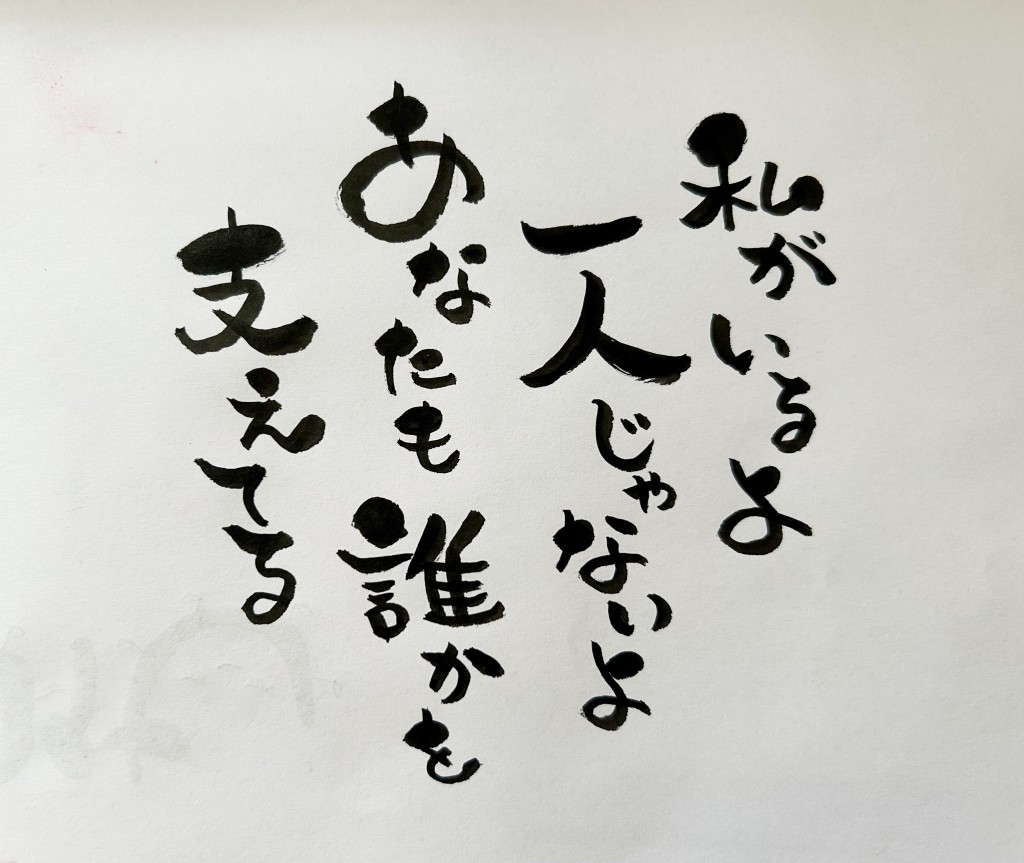 私がいるよ
一人じゃないよ
あなたも誰かを
支えてる